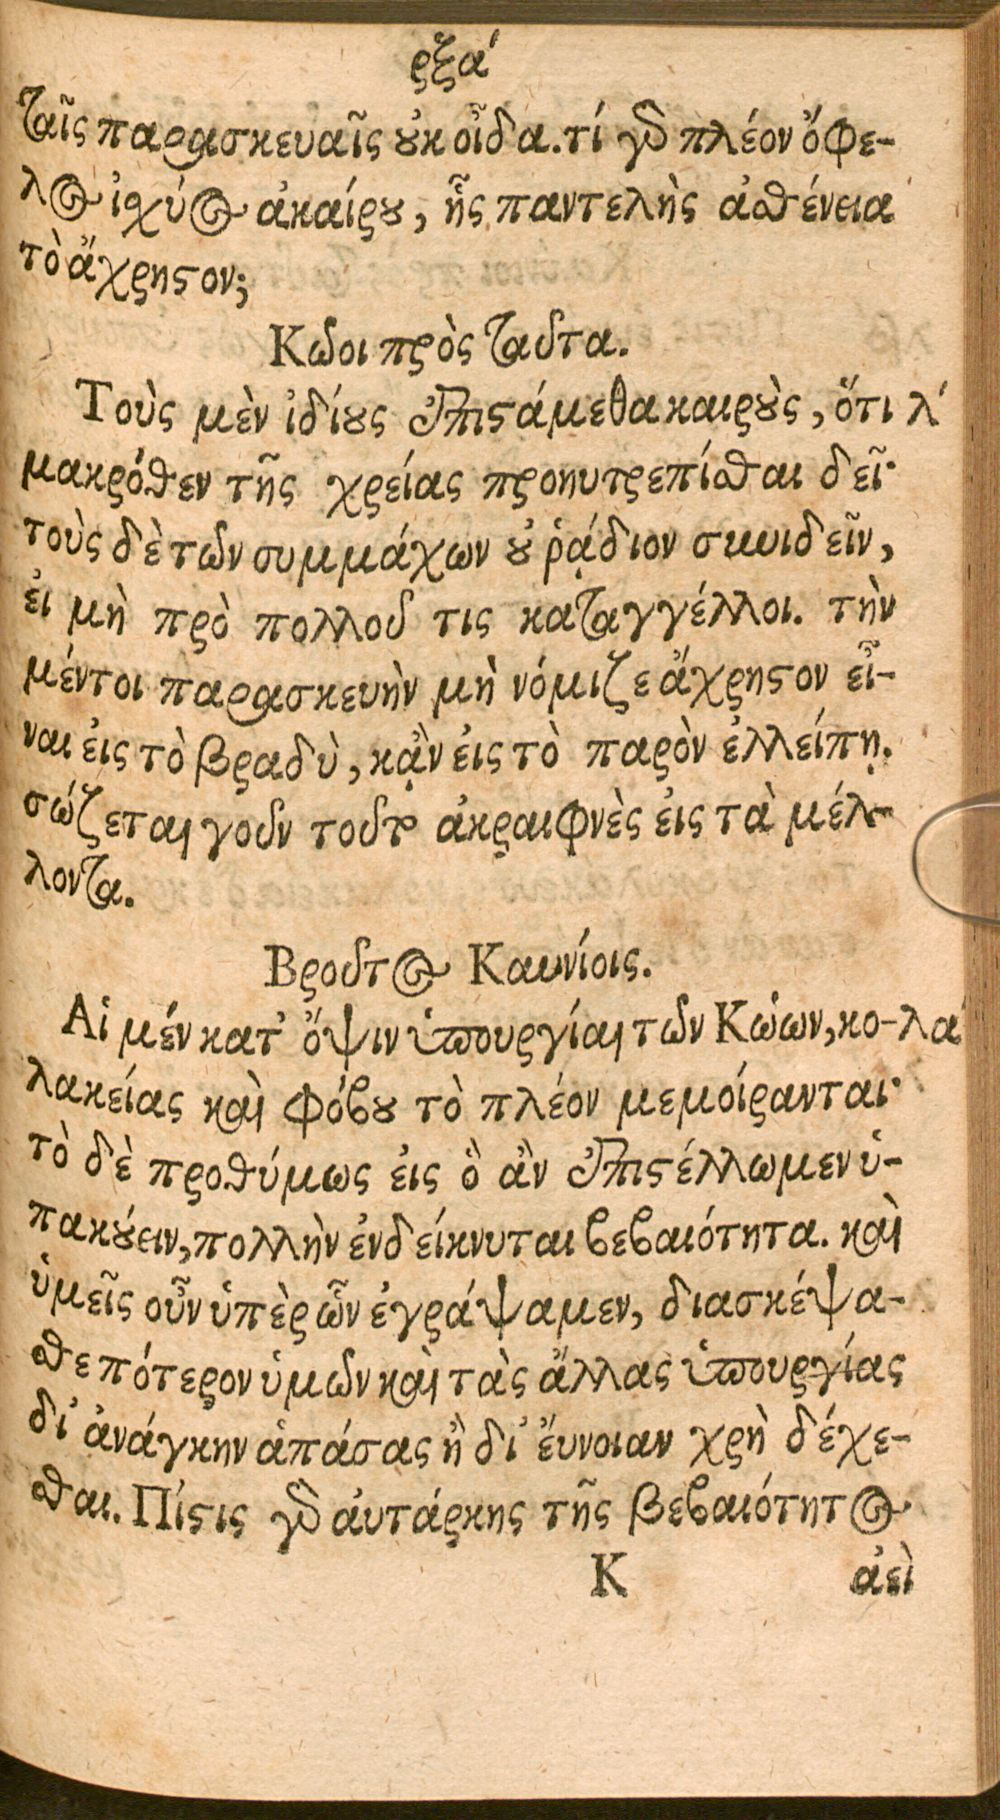 ρξα΄
ταῖς παρασκευαῖς οὐκ οἶδα. τί γὰρ πλέον ὄφε-
λος ἰσχύος ἀκαίρου, ἧς παντελὴς ἀσθένεια
τὸ ἄχρηστον;
Κῶοι πρὸς ταῦτα.
Τοὺς μὲν ἰδίους ἐπιστάμεθα καιροὺς, ὅτι λ΄
μακρόθεν τῆς χρείας προηυτρεπίσθαι δεῖ·
τοὺς δὲ τῶν συμμάχων οὐ ῥᾴδιον συνιδεῖν,
ἐι μὴ πρὸ πολλοῦ τις καταγγέλλοι. τὴν
μέντοι παρασκευὴν μὴ νόμιζε ἄχρηστον εἶ-
ναι ἐις τὸ βραδὺ, κᾂν ἐις τὸ παρὸν ἐλλείπῃ.
σώζεται γοῦν τοῦτο ἀκραιφνὲς ἐις τὰ μέλ-
λοντα.
Βροῦτος Καυνίοις.
Αἱ μέν κατ᾽ ὄψιν ὑπουργίαι τῶν Κώων, κο- λα΄
λακείας καὶ φόβου τὸ πλέον μεμοίρανται·
τὸ δὲ προθύμως ἐις ὃ ἂν ἐπιστέλλωμεν ὑ-
πακούειν, πολλὴν ἐνδείκνυται βεβαιότητα. καὶ
ὑμεῖς οὖν ὑπὲρ ὧν ἐγράψαμεν, διασκέψα-
σθε πότερον ὑμῶν καὶ τὰς ἄλλας ὑπουργίας
δι᾽ ἀνάγκην ἁπάσας ἢ δι᾽ ἔυνοιαν χρὴ δέχε-
σθαι. Πίστις γὰρ ἀυτάρκης τῆς βεβαιότητος
Κ ἀεὶ